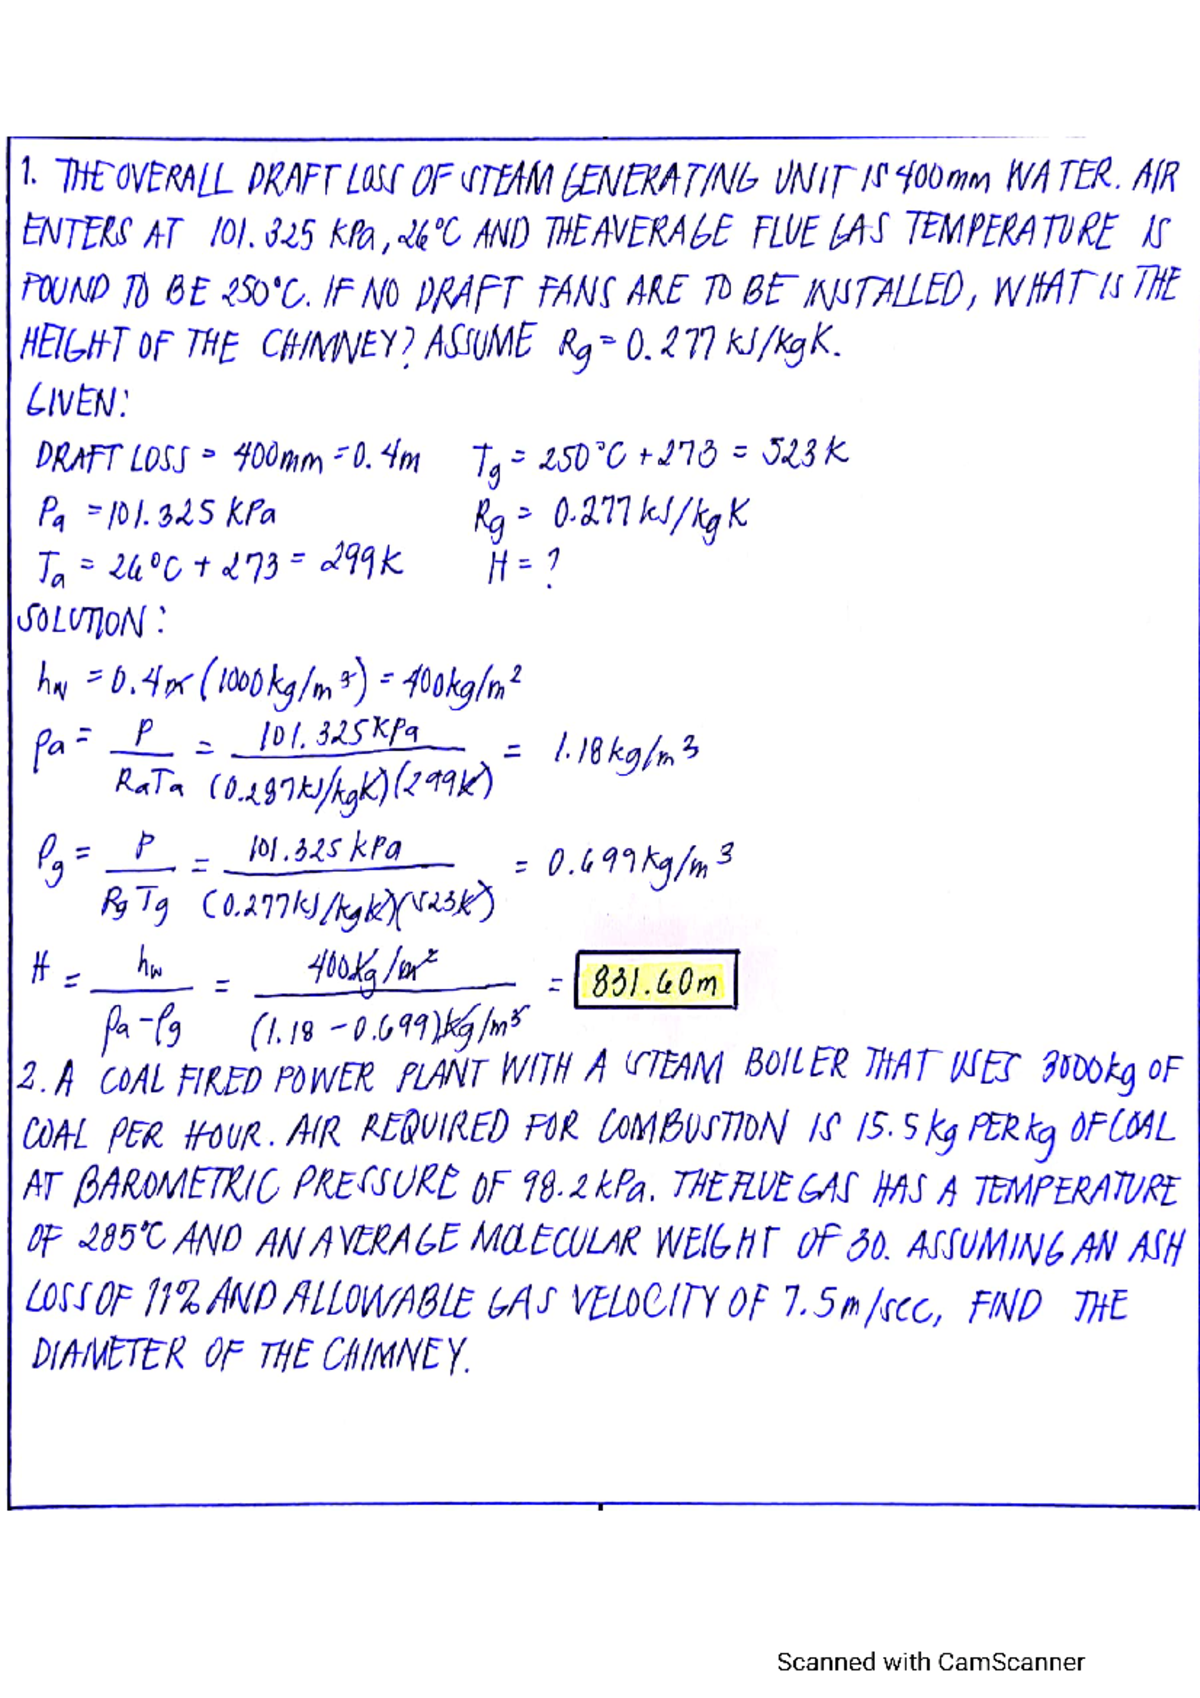 1. THE OVERALL DRAFT LOSS OF STEAM GENERATING UNIT IS 400mm WATER. AIR
ENTERS AT 101.325 KPa, 26°C AND THE AVERAGE FLUE GAS TEMPERATURE IS
FOUND TO BE 250°C. IF NO DRAFT FANS ARE TO BE INSTALLED, WHAT IS THE
HEIGHT OF THE CHIMNEY? ASSUME Rg = 0.277 kJ/kgK.
GIVEN:
DRAFT LOSS = 400mm = 0.4m Tg = 250°C + 273 = 523K
Pa = 101.325 KPa Rg = 0.277 kJ/kgK
Ta = 26°C + 273 = 299K H = ?
SOLUTION:
hw = 0.4m (1000kg/m³) = 400kg/m²
ρa = P / RaTa = 101.325KPa / (0.287kJ/kgK)(299K) = 1.18kg/m³
ρg = P / RgTg = 101.325 kPa / (0.277kJ/kgK)(523K) = 0.699kg/m³
H = hw / ρa-ρg = 400kg/m² / (1.18 - 0.699)kg/m³ = 831.60m
2. A COAL FIRED POWER PLANT WITH A STEAM BOILER THAT USES 3000kg OF
COAL PER HOUR. AIR REQUIRED FOR COMBUSTION IS 15.5 kg PER kg OF COAL
AT BAROMETRIC PRESSURE OF 98.2 kPa. THE FLUE GAS HAS A TEMPERATURE
OF 285°C AND AN AVERAGE MOLECULAR WEIGHT OF 30. ASSUMING AN ASH
LOSS OF 11% AND ALLOWABLE GAS VELOCITY OF 7.5m/sec, FIND THE
DIAMETER OF THE CHIMNEY.
Scanned with CamScanner